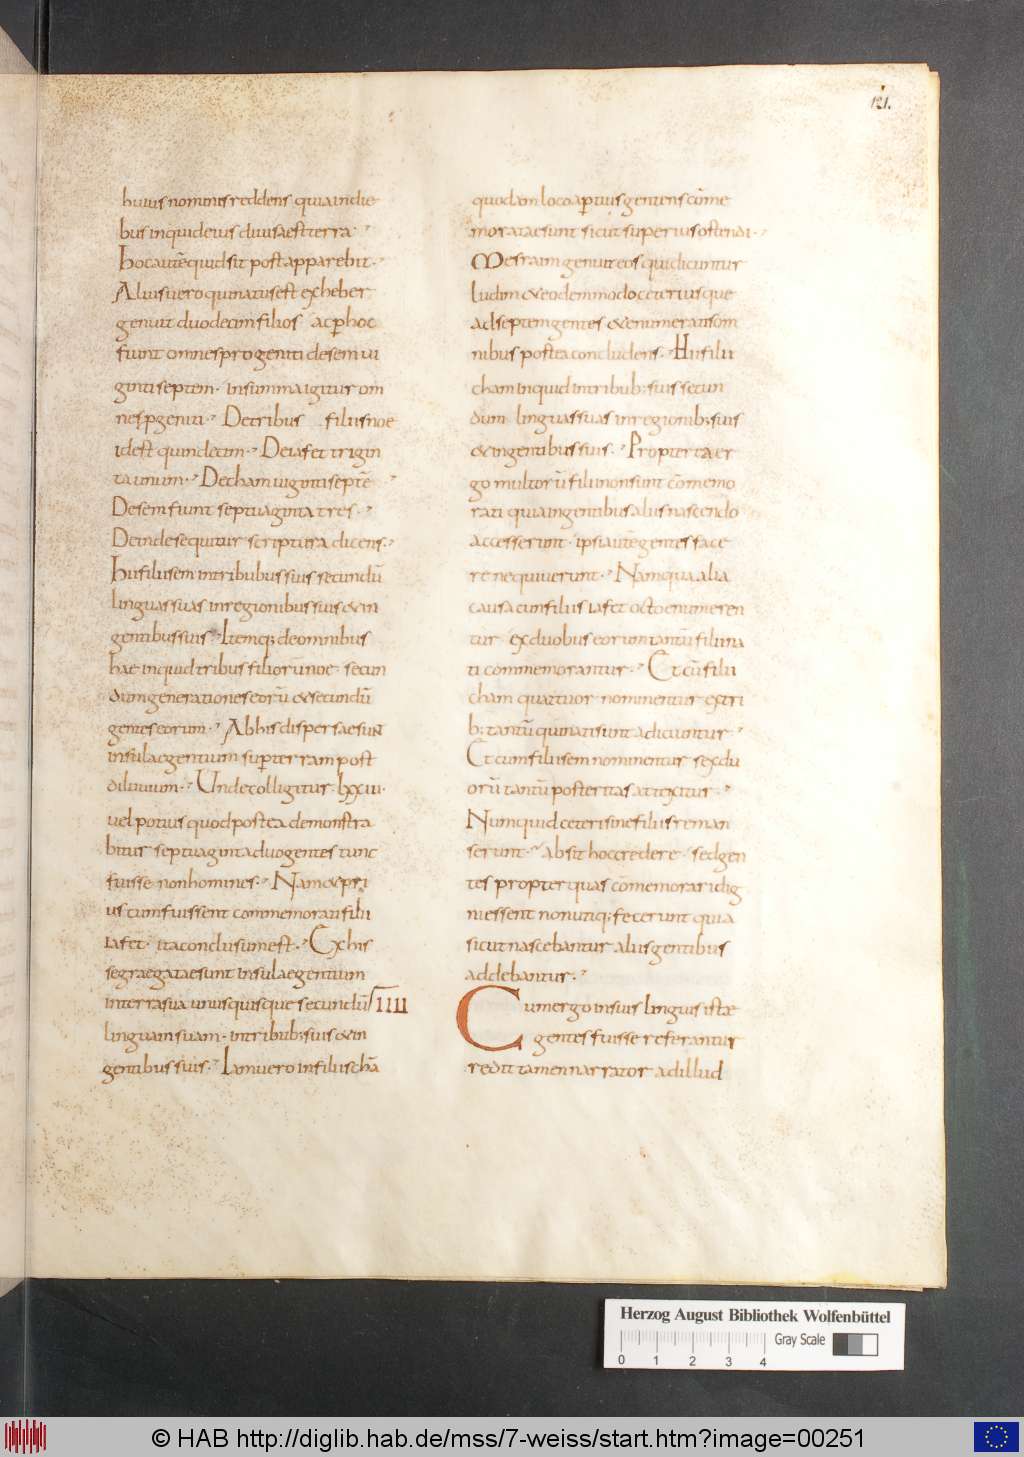 121.
huius nominis reddens quia in die
bus inquid eius diuisa est terra
Hoc autē quid sit post apparebit.
Alius uero qui natus est ex heber
genuit duodecim filios ac p hoc
fiunt omnes progeniti de sem ui
ginti septem. in summa igitur om
nes pgeniti. De tribus filiis noe
id est quindecim. De iafet trigin
ta unum. De cham uiginti septē
De sem fiunt septuaginta tres.
Deinde sequitur scriptura dicens.
Hii filii sem in tribubus suis secundū
linguas suas in regionibus suis & in
gentibus suis. Itemq; de omnibus
hae inquid tribus filiorū noe secun
dum generationes eorū & secundū
gentes eorum. Ab his dispersae sunt
insulae gentium super terram post
diluuium. Unde colligitur lxxiii.
uel potius quod postea demonstra
bitur septuaginta duo gentes tunc
fuisse non homines. Nam & pri
us cum fuissent commemorati filii
iafet. ita conclusum est. Ex his
segraegatae sunt insulae gentium
in terra sua unusquisque secundū IIII
linguam suam. in tribub; suis & in
gentibus suis. Iam uero in filiis chā
quodam loco apertius gentes cōme
moratae sunt sicut superius ostendi.
Mesraim genuit eos qui dicuntur
ludim & eodem modo ceteri usque
ad septem gentes & enumeratis om
nibus postea concludens. Hii filii
cham inquid in tribub; suis secun
dum linguas suas in regionib; suis
& in gentibus suis. Propterea er
go multorū filii non sunt cōmemo
rati quia in gentibus aliis nascendo
accesserunt. ipsi autē gentes face
re nequiuerunt. Nam qua alia
causa cum filiis iafet octo enumeren
tur ex duobus eorum tantū filii na
ti commemorantur. Et cū filii
cham quattuor nominentur ex tri
b; tantū qui nati sunt adiciuntur
Et cum filii sem nominentur sex du
orū tantū posteritas attexitur.
Numquid ceteri sine filiis reman
serunt. absit hoc credere. sed gen
tes propter quas cōmemorari dig
ni essent non utiq; fecerunt quia
sicut nascebantur aliis gentibus
addebantur.
Cum ergo in suis linguis istae
gentes fuisse referantur
redit tamen narrator ad illud
Herzog August Bibliothek Wolfenbüttel
Gray Scale
0 1 2 3 4
© HAB http://diglib.hab.de/mss/7-weiss/start.htm?image=00251